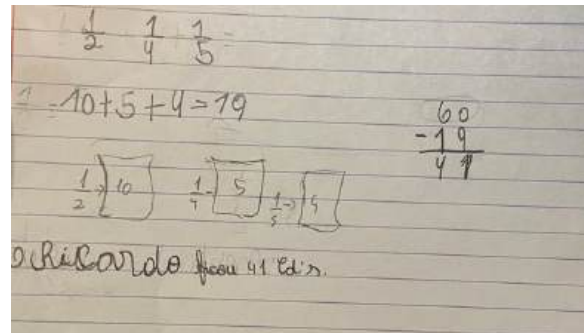 1/2 1/4 1/5 =
1 - 10+5+4=19
60
-19
41
1/2 → 10 1/4 - 5 1/5 → 4
O Ricardo ficou 41 Cd's.